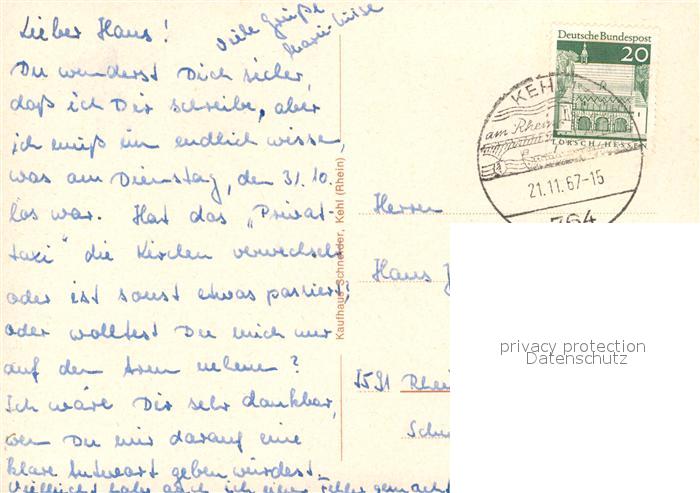 Lieber Hans!
Viele Grüße
Marie-Luise
Du wunderst Dich sicher,
daß ich Dir schreibe, aber
ich muß im endlich wissen,
was am Dienstag, den 31.10.
los war. Hat das "Privat-
taxi" die Kirchen verwechselt
oder ist sonst etwas passiert;
oder wolltest Du mich nur
auf den Arm nehmen?
Ich wäre Dir sehr dankbar,
wen Du mir darauf eine
klare Antwort geben würdest.
Vielleicht habe auch ich einen Fehler gemacht
Kaufhaus Schneider, Kehl (Rhein)
Deutsche Bundespost
20
LORSCH/HESSEN
KEHL
am Rhein
21.11.67-15
764
Herren
Hans J
7591 Rhei
Schu
privacy protection
Datenschutz